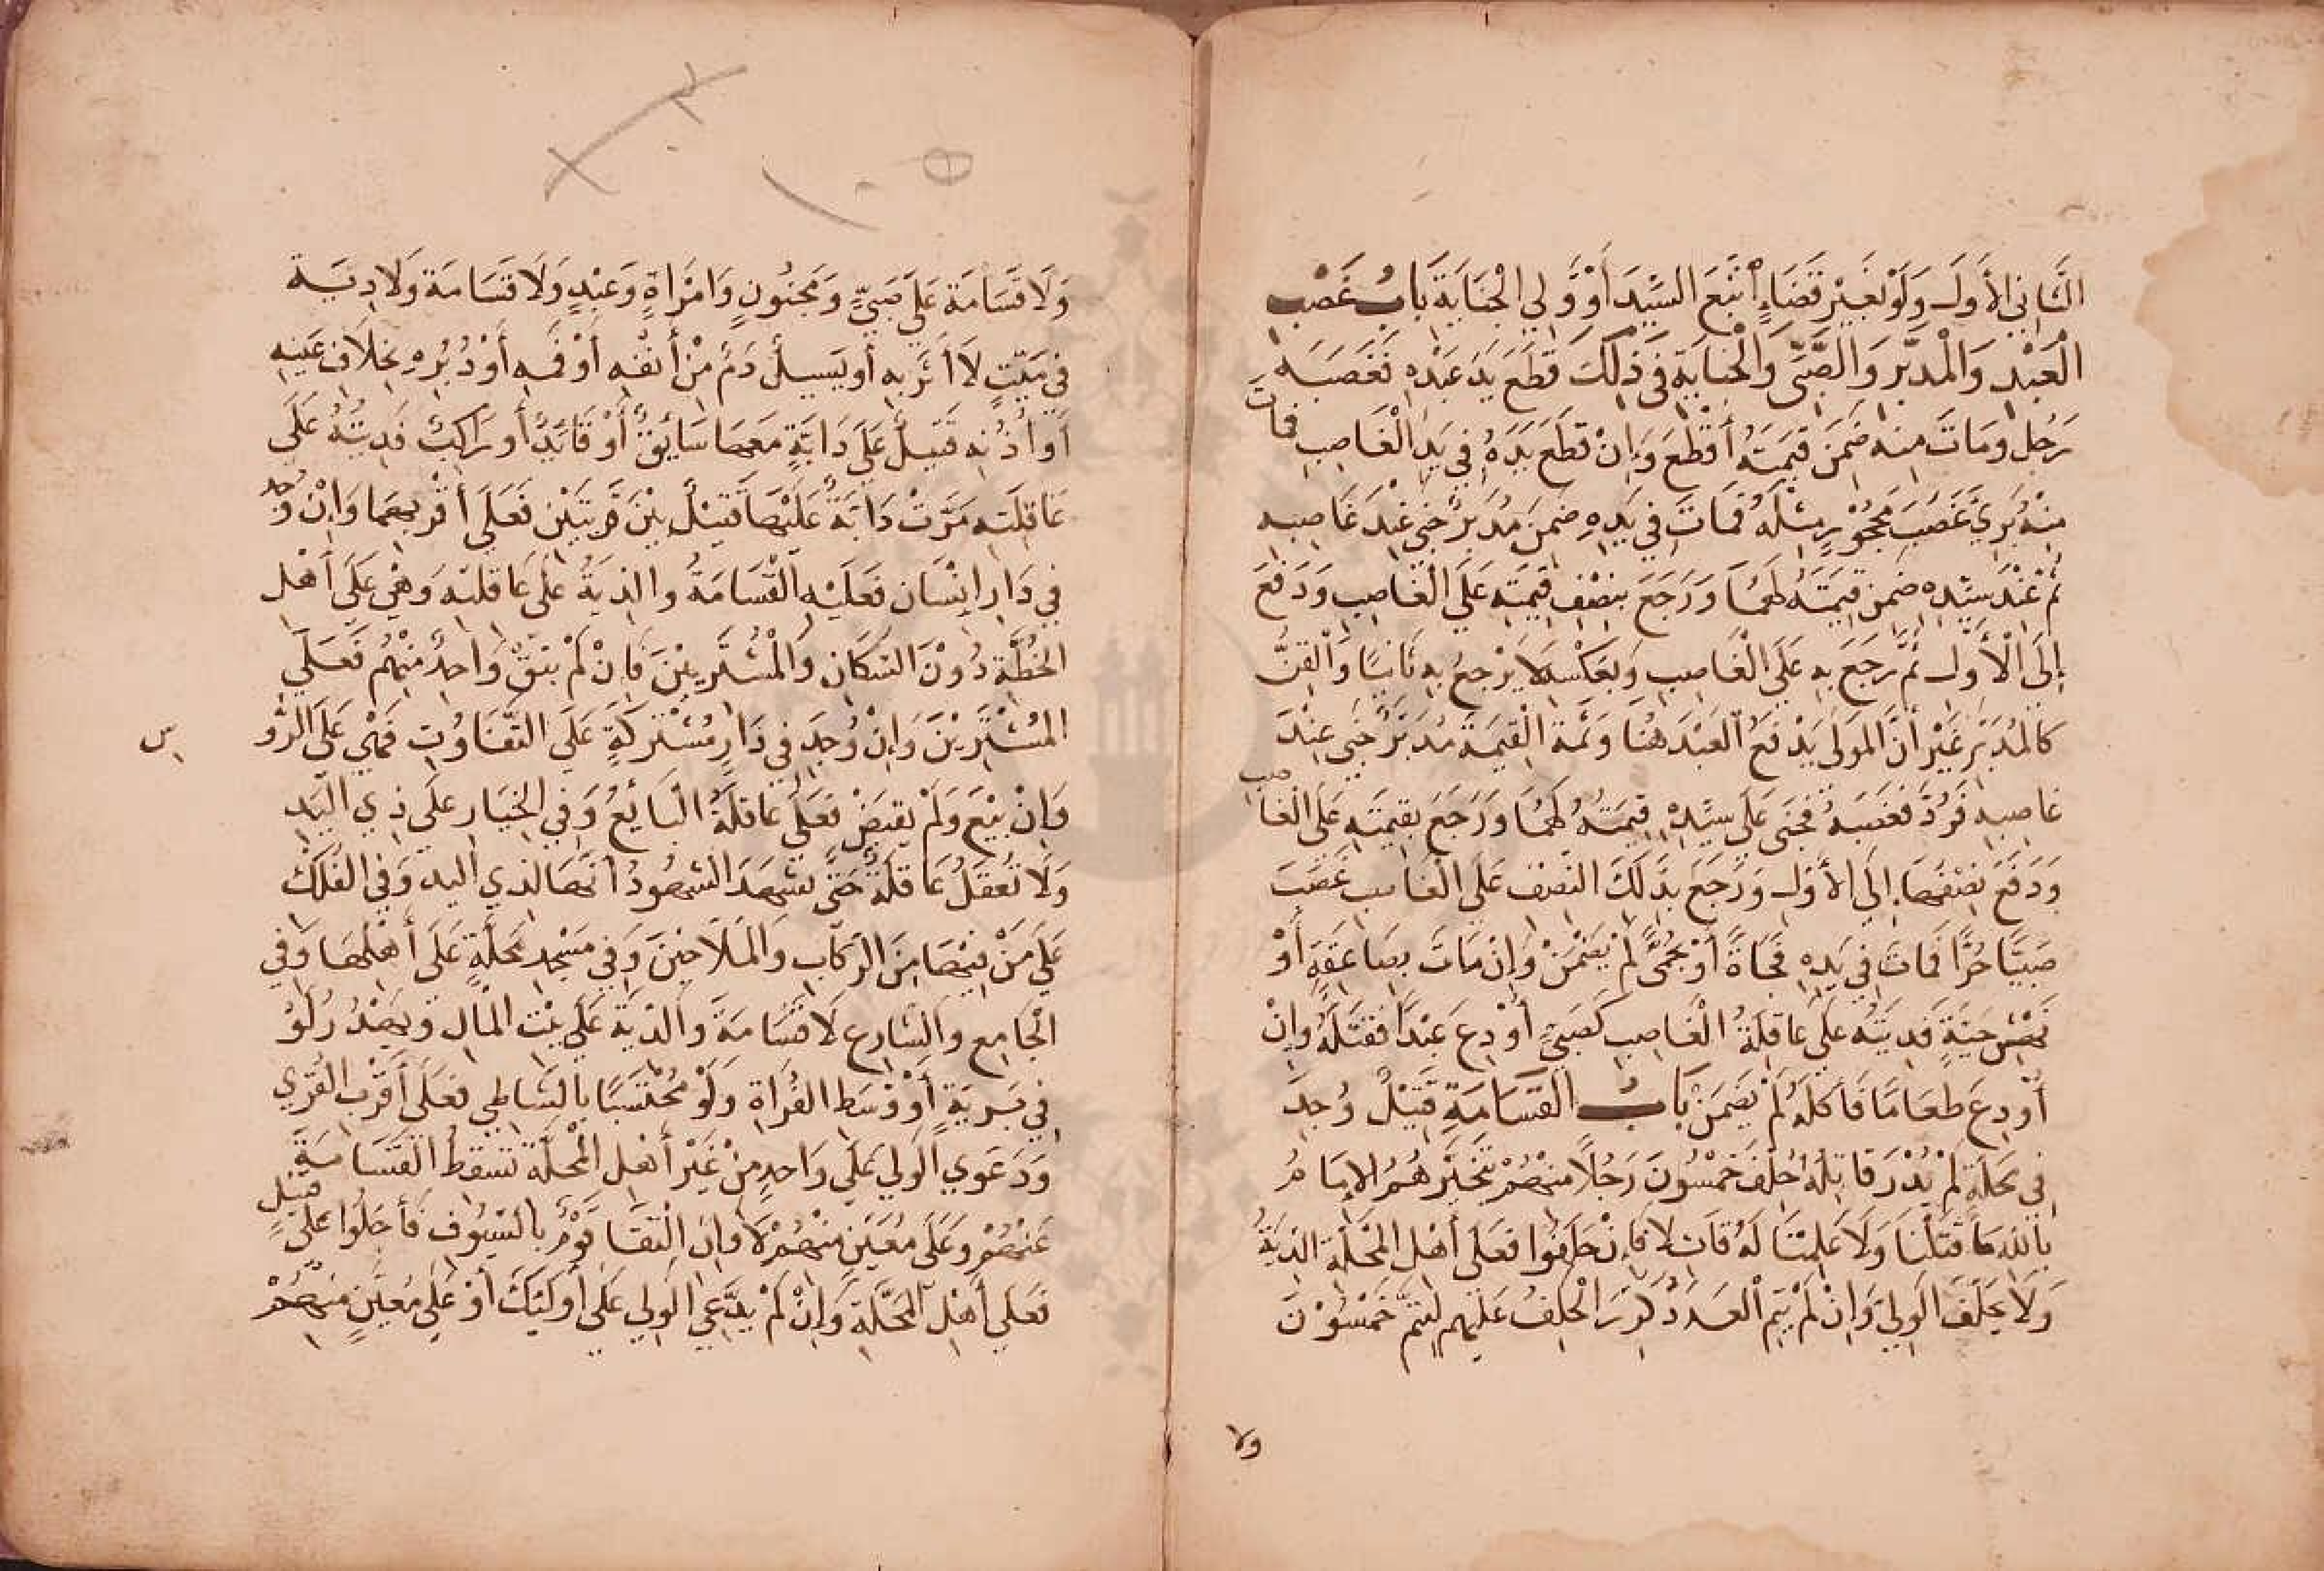 الثَّانِي الأَوَّلَ وَلَوْ بِغَيْرِ قَضَاءٍ أَتْبَعَ السَّيِّدَ أَوْ وَلِي الْجِنَايَةَ بَابُ غَصْبِ
الْعَبْدِ وَالْمُدَبَّرِ وَالصَّبِيِّ وَالْجِنَايَةِ فِي ذٰلِكَ قَطَعَ يَدَ عَبْدِهِ فَغَصَبَهُ
رَجُلٌ وَمَاتَ مِنْهُ ضَمِنَ قِيمَتَهُ أَقْطَعَ وَإِنْ قَطَعَ يَدَهُ فِي يَدِ الْغَاصِبِ فَمَاتَ
مِنْهُ بُرِئَ غَصَبَ مَحْجُوْرٌ مِثْلَهُ فَمَاتَ فِي يَدِهِ ضَمِنَ مُدَبَّرٌ جَنَى عِنْدَ غَاصِبِهِ
ثُمَّ عِنْدَ سَيِّدِهِ ضَمِنَ قِيمَتَهُ لَهُمَا وَرَجَعَ بِنِصْفِ قِيمَتِهِ عَلَى الْغَاصِبِ وَدَفَعَ
إِلَى الْأَوَّلِ ثُمَّ رَجَعَ بِهِ عَلَى الْغَاصِبِ وَبِعَكْسِهِ لَا يَرْجِعُ بِهِ ثَانِيًا وَالْقِنُّ
كَالْمُدَبَّرِ غَيْرَ أَنَّ الْمَوْلَى يَدْفَعُ الْعَبْدَ هُنَا وَثَمَّةَ الْقِيمَةَ مُدَبَّرٌ جَنَى عِنْدَ
غَاصِبِهِ فَرُدَّ فَغَصَبَهُ فَجَنَى عَلَى سَيِّدِهِ قِيمَتُهُ لَهُمَا وَرَجَعَ بِقِيمَتِهِ عَلَى الْغَاصِبِ
وَدَفَعَ نِصْفَهَا إِلَى الأَوَّلِ وَرَجَعَ بِذٰلِكَ النِّصْفِ عَلَى الْغَاصِبِ غَصَبَ
صَبِيًّا حُرًّا فَمَاتَ فِي يَدِهِ فَجْأَةً أَوْ بِحُمَّى لَمْ يَضْمَنْ وَإِنْ مَاتَ بِصَاعِقَةٍ أَوْ
نَهْشِ حَيَّةٍ فَدِيَتُهُ عَلَى عَاقِلَةِ الْغَاصِبِ كَصَبِيٍّ أُوْدِعَ عَبْدًا فَقَتَلَهُ وَإِنْ
أُوْدِعَ طَعَامًا فَأَكَلَهُ لَمْ يَضْمَنْ بَابُ الْقَسَامَةِ قَتِيْلٌ وُجِدَ
فِي مَحَلَّةٍ لَمْ يُدْرَ قَاتِلُهُ حُلِّفَ خَمْسُوْنَ رَجُلًا مِنْهُمْ يَتَخَيَّرُهُمُ الإِمَامُ
بِاللهِ مَا قَتَلْنَا وَلَا عَلِمْنَا لَهُ قَاتِلًا فَإِنْ حَلَفُوا فَعَلَى أَهْلِ الْمَحَلَّةِ الدِّيَةُ
وَلَا يَحْلِفُ الْوَلِيُّ وَإِنْ لَمْ يَتِمَّ الْعَدَدُ كُرِّرَ الْحَلِفُ عَلَيْهِمْ لِيَتِمَّ خَمْسُوْنَ
ولا
وَلَا قَسَامَةَ عَلَى صَبِيٍّ وَمَجْنُونٍ وَامْرَأَةٍ وَعَبْدٍ وَلَا قَسَامَةَ وَلَا دِيَةَ
فِي مَيِّتٍ لَا أَثَرَ بِهِ أَو يَسِيلُ دَمٌ مِنْ أَنْفِهِ أَوْ فَمِهِ أَوْ دُبُرِهِ بِخِلَافِ عَيْنِهِ
أَوْ أُذُنِهِ قَتِيلٌ عَلَى دَابَّةٍ مَعَهَا سَائِقٌ أَوْ قَائِدٌ أَو رَاكِبٌ فَدِيَتُهُ عَلَى
عَاقِلَتِهِ مَرَّتْ دَابَّةٌ عَلَيْهَا قَتِيْلٌ بَيْنَ قَرْيَتَيْنِ فَعَلَى أَقْرَبِهِمَا وَإِنْ وُجِدَ
فِي دَارِ إِنْسَانٍ فَعَلَيْهِ الْقَسَامَةُ وَالدِّيَةُ عَلَى عَاقِلَتِهِ وَهِيَ عَلَى أَهْلِ
الْخُطَّةِ دُوْنَ السُّكَّانِ وَالْمُشْتَرِيِيْنَ فَإِنْ لَمْ يَبْقَ وَاحِدٌ مِنْهُمْ فَعَلَى
الْمُشْتَرِيْنَ وَإِنْ وُجِدَ فِي دَارٍ مُشْتَرَكَةٍ عَلَى التَّفَاوُتِ فَهِيَ عَلَى الرُّؤُ
س
وَإِنْ بِيْعَ وَلَمْ يُقْبَضْ فَعَلَى عَاقِلَةِ الْبَائِعِ وَفِي الْخِيَارِ عَلَى ذِي الْيَدِ
وَلَا تُعْقَلُ عَاقِلَةٌ حَتَّى يَشْهَدَ الشُّهُودُ أَنَّهَا لِذِي الْيَدِ وَفِي الْفُلْكِ
عَلَى مَنْ فِيْهَا مِنَ الرُّكَّابِ وَالْمَلَّاحِيْنَ وَفِي مَسْجِدِ مَحَلَّةٍ عَلَى أَهْلِهَا وَفِي
الْجَامِعِ وَالشَّارِعِ لَا قَسَامَةَ وَالدِّيَةُ عَلَى بَيْتِ الْمَالِ وَيُهْدَرُ لَوْ
فِي بَرِّيَةٍ أَوْ وَسَطِ الْفُرَاةِ وَلَوْ مُحْتَبَسًا بِالشَّاطِي فَعَلَى أَقْرَبِ الْقُرَي
وَدَعْوَي الْوَلِي عَلَى وَاحِدٍ مِنْ غَيْرِ أَهْلِ الْمَحَلَّةِ تُسْقِطُ الْقَسَامَةَ
عَنْهُمْ وَعَلَى مُعَيَّنٍ مِنْهُمْ لَا وَإِنِ الْتَقَا قَوْمٌ بِالسُّيُوفِ فَأَجْلَوْا عَلَى قَتِيلٍ
فَعَلَى أَهْلِ الْمَحَلَّةِ وَإِنْ لَمْ يَدَّعِي الْوَلِي عَلَى أُولَئِكَ أَوْ عَلَى مُعَيَّنٍ مِنْهُمْ